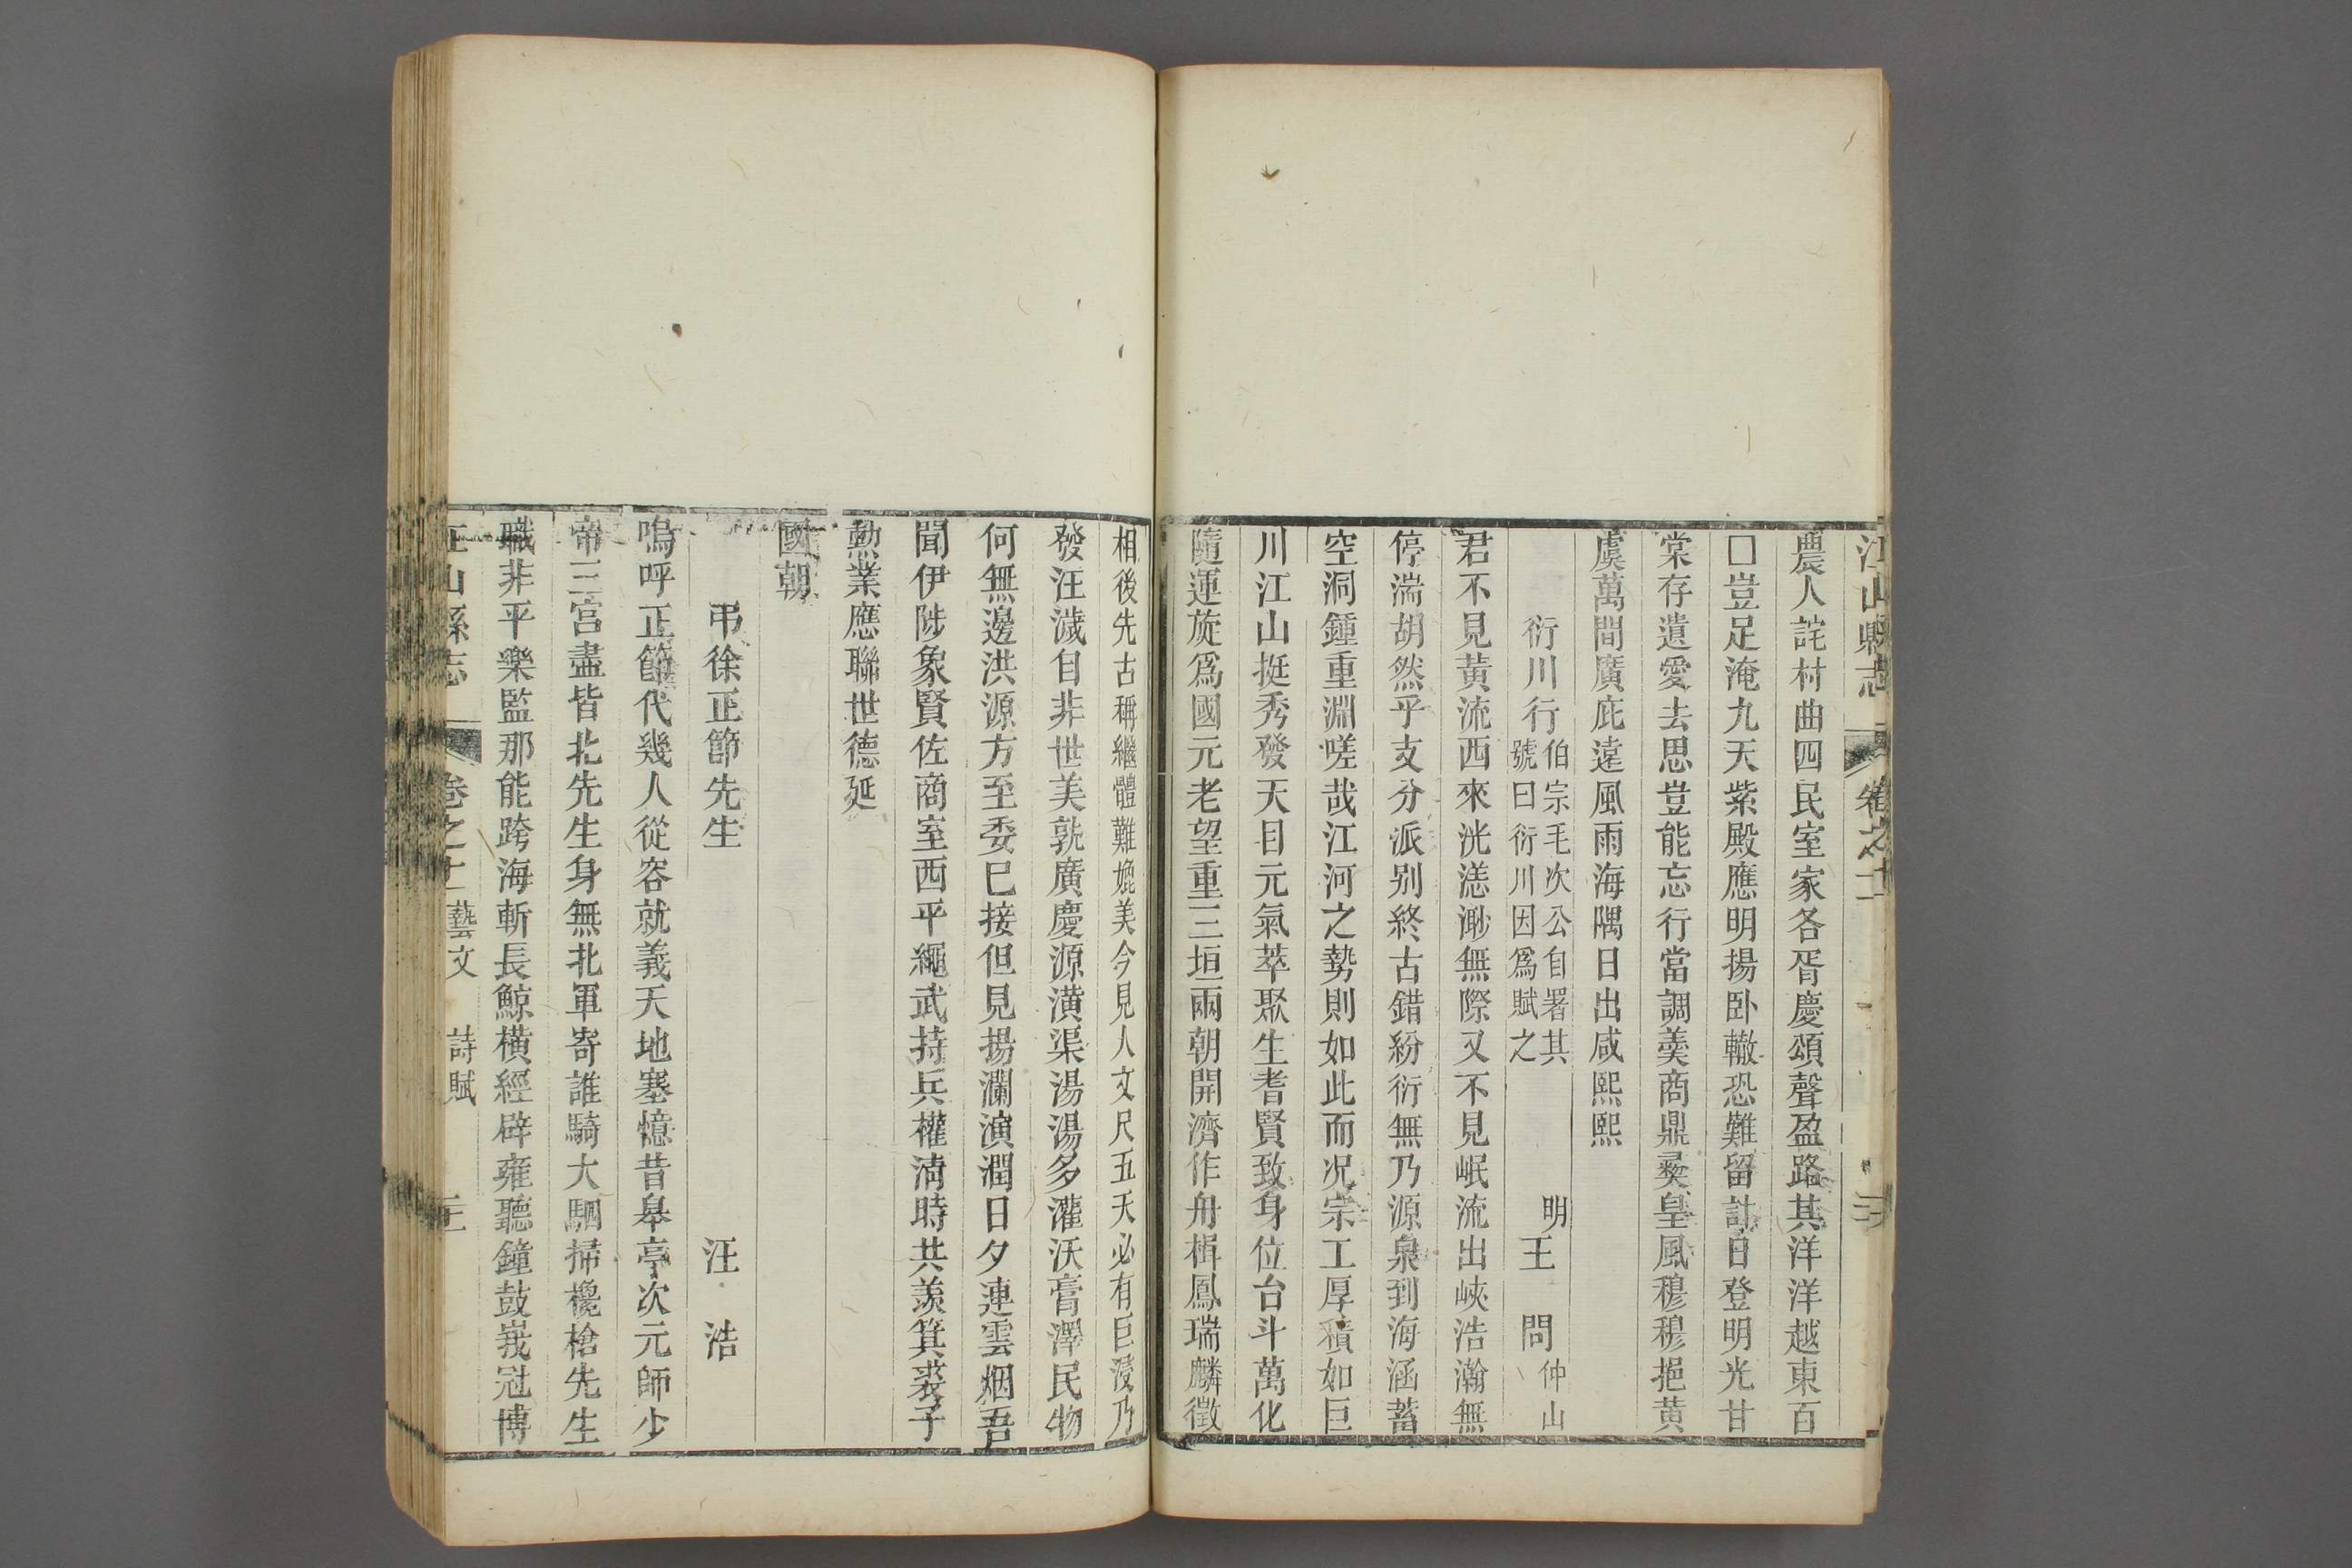 江山縣志 卷之十一
農人詫村曲四民室家各胥慶頌聲盈路其洋洋越東百
口豈足淹九天紫殿應明揚卧轍恐難留計日登明光甘
棠存遺愛去思豈能忘行當調羹商鼎彛皇風穆穆挹黃
虞萬間廣庇遠風雨海隅日出咸熙熙
衍川行 伯宗毛次公自署其號曰衍川因爲賦之 明王問仲山
君不見黃流西來洸漾渺無際又不見岷流出峽浩瀚無
停湍胡然乎支分派别終古錯紛衍無乃源泉到海涵蓄
空洞鍾重淵嗟哉江河之勢則如此而况宗工厚積如巨
川江山挺秀發天目元氣萃聚生耆賢致身位台斗萬化
隨運旋爲國元老望重三垣兩朝開濟作舟楫鳳瑞麟徵
相後先古稱繼體難媲美今見人文尺五天必有巨浸乃
發汪濊自非世美孰廣慶源潢渠湯湯多灌沃膏澤民物
何無邊洪源方至委已接但見揚瀾演潤日夕連雲烟吾
聞伊陟象賢佐商室西平繩武持兵權淸時共羨箕裘子
勲業應聯世德延
國朝
弔徐正節先生 汪浩
嗚呼正節代幾人從容就義天地塞憶昔皋亭次元師少
帝三宮盡皆北先生身無北軍寄誰騎大駟掃欃槍先生
職非平樂監那能跨海斬長鯨橫經辟雍聽鐘鼓峩冠博
江山縣志 卷之十一 藝文 詩賦